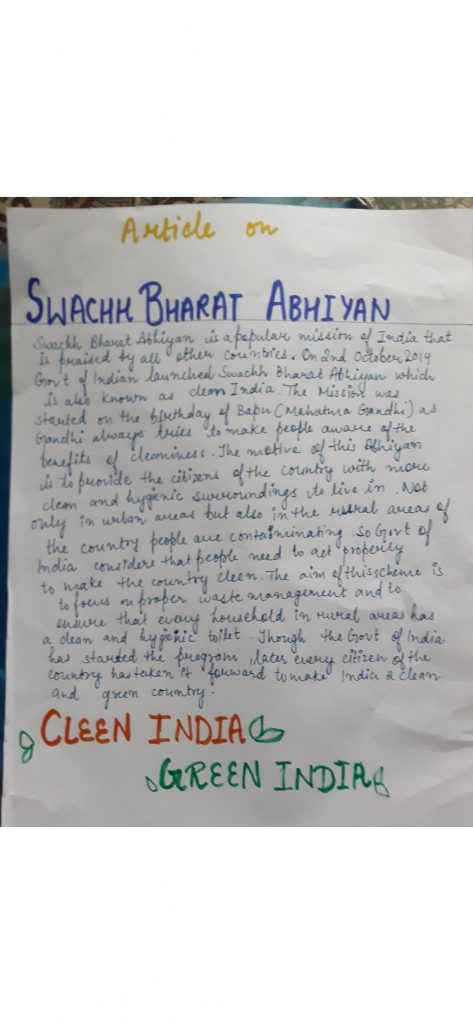 Article on
SWACHH BHARAT ABHIYAN
Swachh Bharat Abhiyan is a popular mission of India that
is praised by all other countries. On 2nd October 2014
Gov't of Indian launched Swachh Bharat Abhiyan which
is also known as clean India. The Mission was
started on the birthday of Bapu (Mahatma Gandhi) as
Gandhi always tries to make people aware of the
benefits of cleaniness. The motive of this Abhiyan
is to provide the citizens of the country with more
clean and hygenic surroundings to live in. Not
only in urban areas but also in the rural areas of
the country people are contaminating. So Govt of
India considers that people need to act properly
to make the country cleen. The aim of this scheme is
to focus on proper waste management and to
ensure that every household in rural areas has
a clean and hygienic toilet. Though the Govt of India
has started the program, later every citizen of the
country has taken it forward to make India a clean
and green country.
CLEEN INDIA
GREEN INDIA